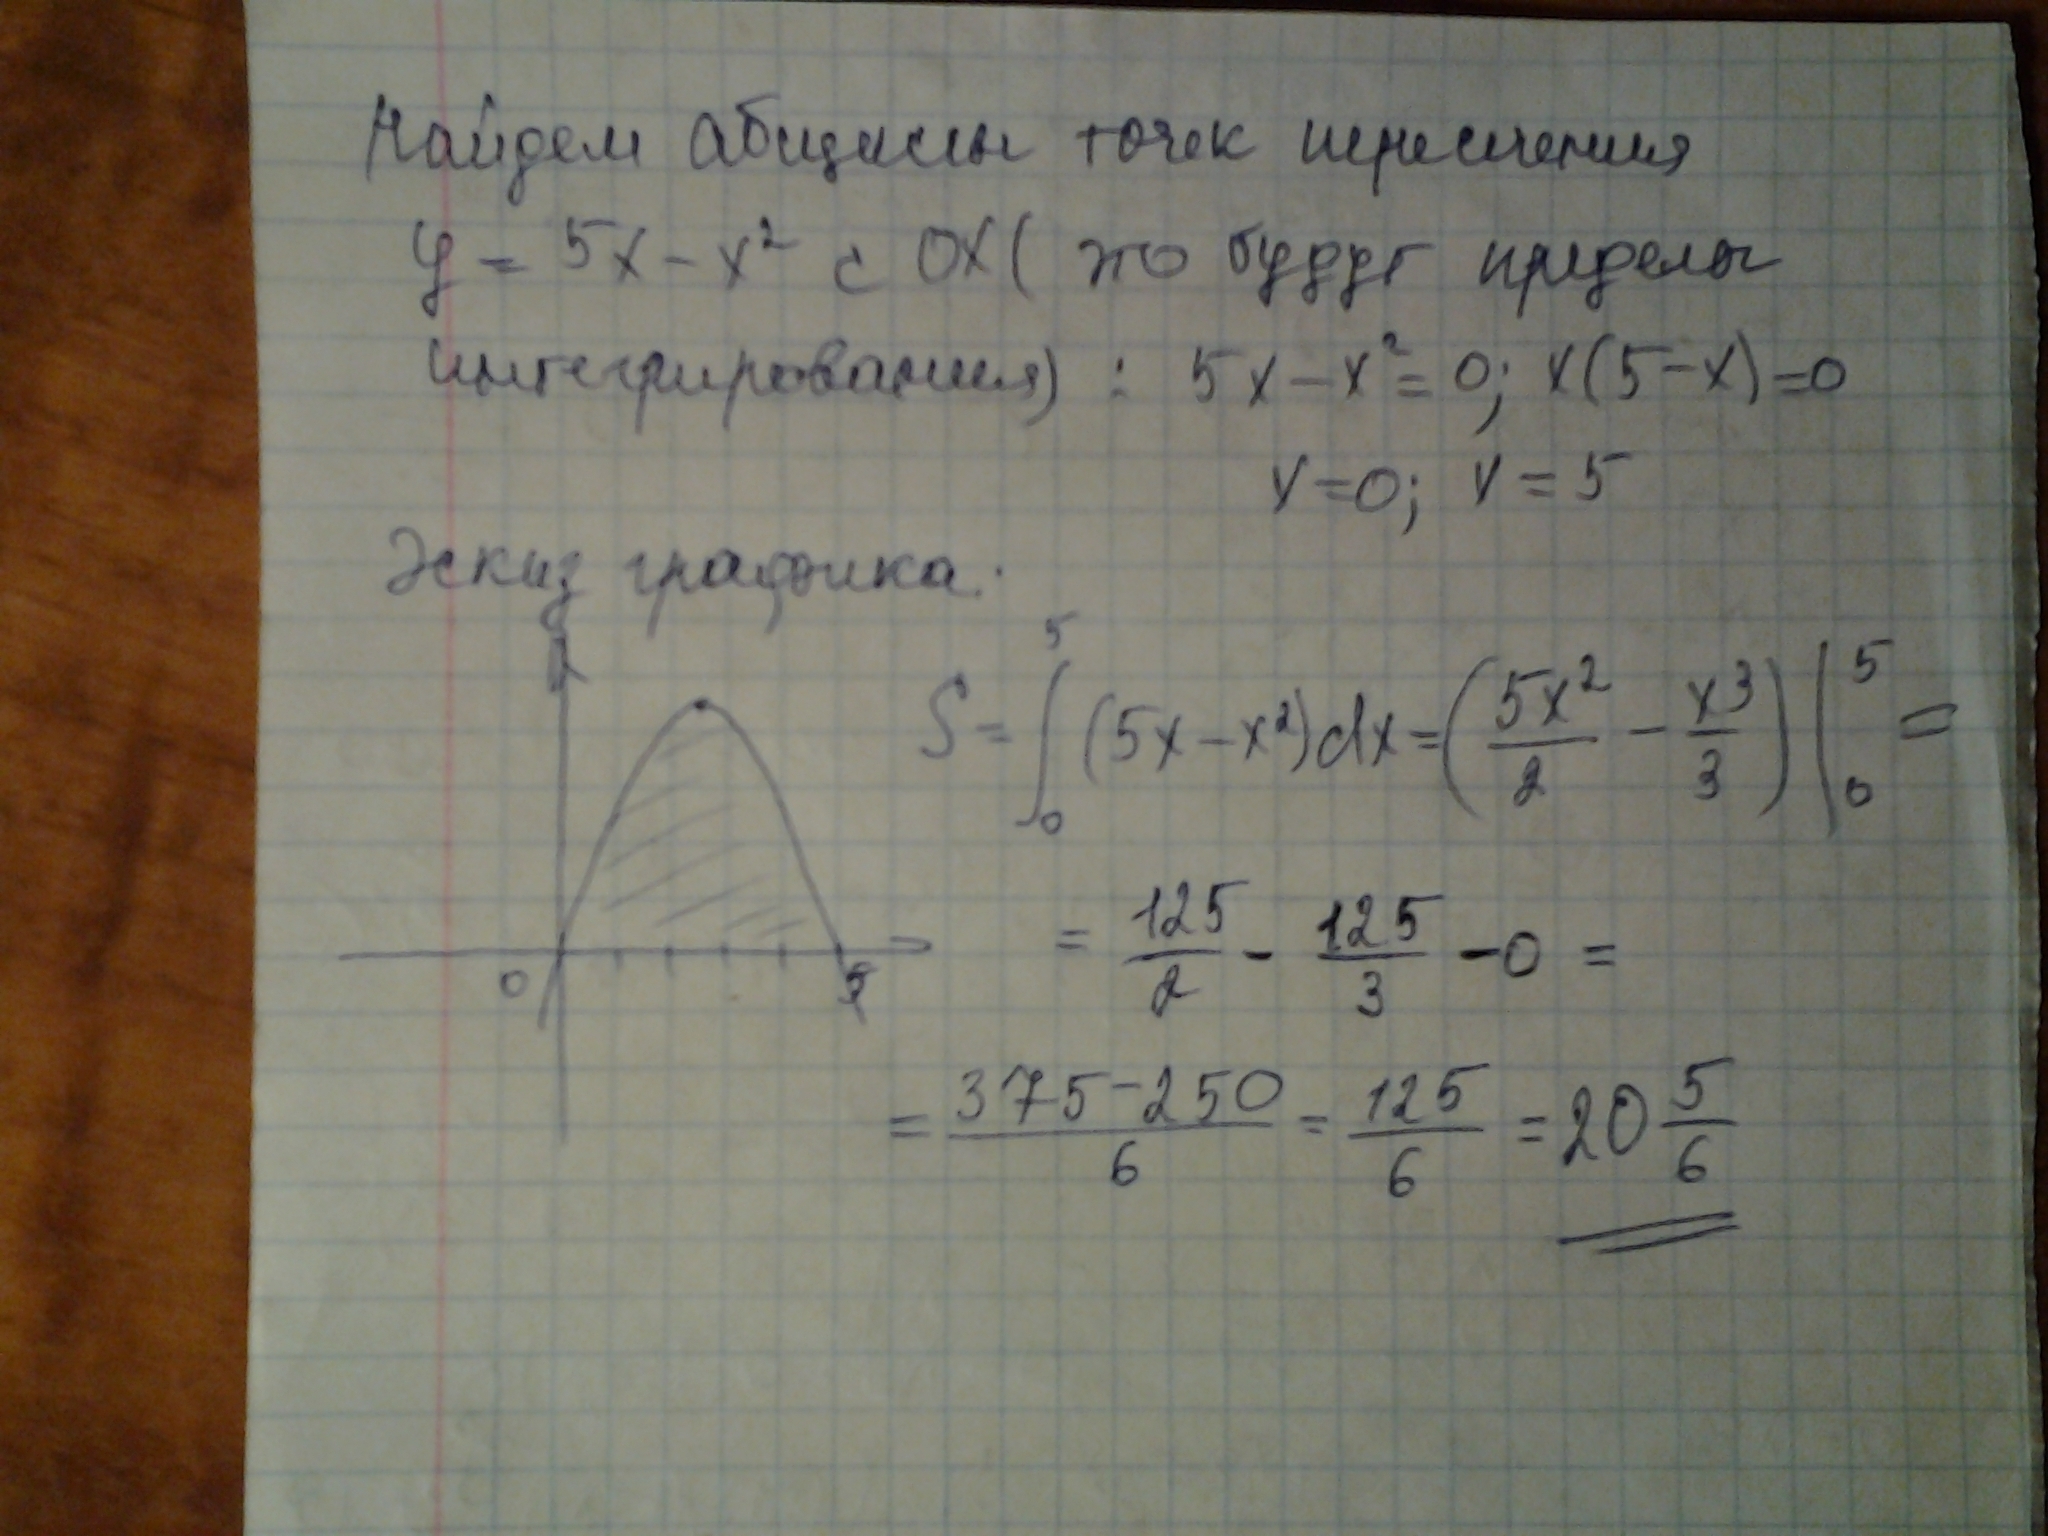 Найдем абициссы точек пересечения
y = 5x - x² с OX ( это будут пределы
интегрирования) : 5x - x² = 0; x(5-x)=0
x=0; x = 5
Эскиз графика.
S = ∫₀⁵ (5x - x²)dx = (5x²/2 - x³/3) |₀⁵ =
= 125/2 - 125/3 - 0 =
0 5
= (375-250)/6 = 125/6 = 20 5/6